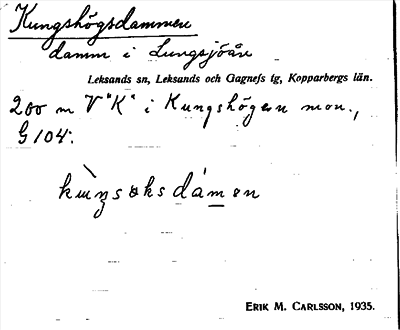 Kungshögsdammen
damm i Lungsjöån
Leksands sn, Leksands och Gagnefs tg, Kopparbergs län.
200 m V "K" i Kungshögen mon.,
G 104:
kùŋsəksdámən
ERIK M. CARLSSON, 1935.